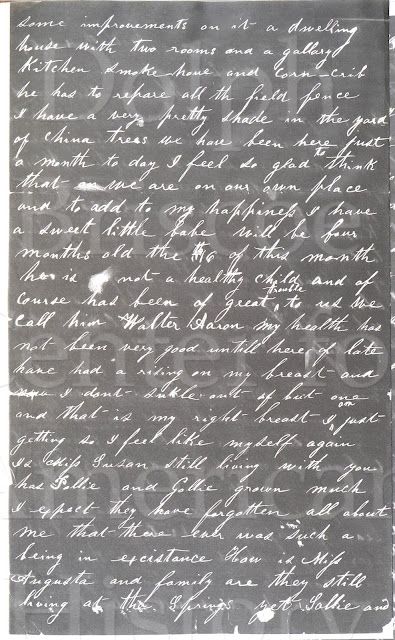 some improvements on it a dwelling
house with two rooms and a gallary
Kitchen smoke house and corn-crib
he has to repare all th field fence
I have a very pretty shade in the yard
of china trees we have been here just
a month to day I feel so glad to think
that we are on our own place
and to add to my happiness I have
a sweet little babe will be four
months old the 16 of this month
he is not a healthy child and of
course has been of great trouble to us we
call him Walter Haron my health has
not been very good untill here of late
have had a rising on my breast and
now I dont sukle out of but one
and that is my right breast I am just
getting so I feel like myself again
Is Miss Susan still living with you
has Sollie and Gollie grown much
I expect they have forgotten all about
me that there ever was such a
being in excistance How is Miss
Augusta and family are they still
living at the Springs yet Sallie and